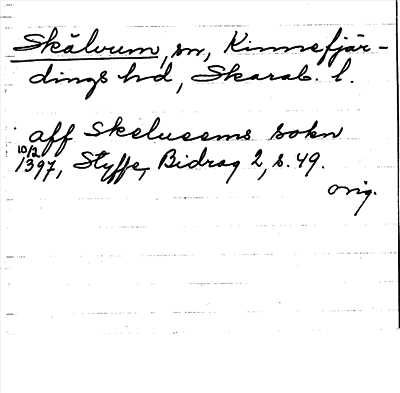 Skälvum, sn, Kinnefjär-
dings hd, Skarab. l.
aff Skelusems sokn
10/2 1397, Styffe, Bidrag 2, s. 49.
orig.